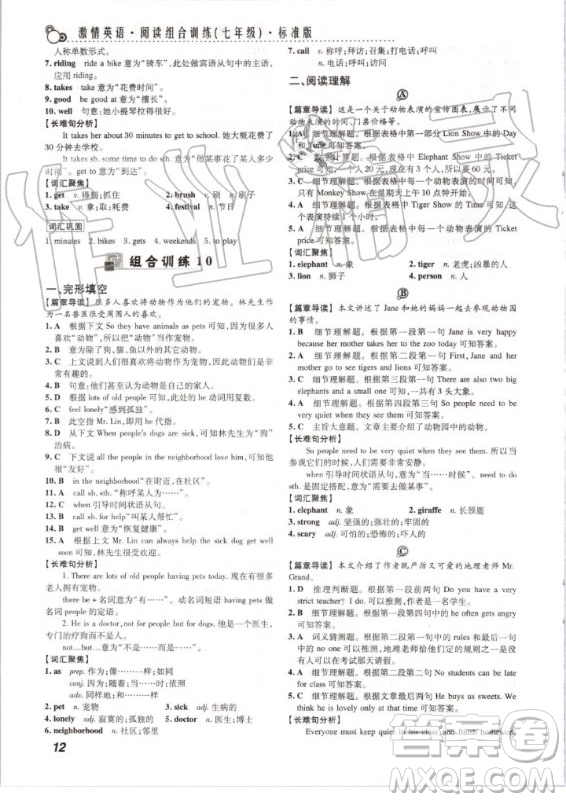 激情英语·阅读组合训练(七年级)·标准版
人称单数形式。
7. riding ride a bike 意为“骑车”,此处宾语从句中的主语,应用riding。
8. takes take 意为“花费时间”。
9. good be good at 意为“擅长”。
10. well 句意:她小提琴拉得很好。
【长难句分析】
It takes her about 30 minutes to get to school. 她大约花费了30分钟去学校。
It takes sb. some time to do sth. 意为“做某事花费某人多少时间”。
【词汇聚焦】
1. get v. 得到;抓住 2. brush v. 刷 n. 刷子
3. take v. 拿;取;耗费 4. festival n. 节日
词汇巩固
1. minutes 2. bikes 3. gets 4. weekends 5. to play
组合训练 10
一、完形填空
【篇章导读】很多人喜欢将动物作为宠物。林先生作为一名兽医很受周围人的喜欢。
1. A 根据下文 So they have animals as pets 可知,很多人喜欢“动物”,所以选 A。
2. B 意为除了狗、猫,一些人还喜欢其他的动物。
3. C 上文说到人们很喜欢将动物作为宠物,所以选 C。
4. B 意为人们总是让动物进自己的家里。
5. D 根据 lots of old people 可知, be 动词用复数。
6. C feel lonely“感到孤独”。
7. B 上文提到 Mr. Lin,所以即用 he 代指。
8. D 从下文 When people's dogs are sick,可知,意为“狗”治病。
9. C 下文说到 all people in the neighborhood love him 可知。
10. B in the neighborhood“在附近,在社区”。
11. A call sb. sth. “称呼某人为……”。
12. C when 引导时间状语从句。
13. B call sb. 意为“打电话给某人”。
14. D get well 意为“恢复健康”。
15. A 根据上文 Mr. Lin can always help the sick dog get well soon 可知。
【长难句分析】
1. There are lots of old people having pets today. 现在有很多老年人拥有宠物。
there be + 名词意为“有”。动词词短语 having pets 作名词 people 的定语。
2. He is a doctor, but not for people but for dogs. 他是一个医生,专门治疗狗而不是人。
not...but...意为“不是……而是……”。
【词汇聚焦】
1. as prep. 作为;像……一样 conj. 如同
adv. 同样地;如同
2. pet n. 宠物 3. sick adj. 生病的
4. lonely adj. 孤独的 5. doctor n. 医生;医师
6. neighborhood n. 附近;街坊;社区;街区
12
7. call v. 称呼;拜访;召集;打电话;呼叫
n. 电话;呼叫;访问
二、阅读理解
A
【篇章导读】这是一个关于动物表演的宣传图表,我们可以从中了解有关动物表演的信息。
1. A 细节理解题。根据表格中第一部分 Lion Show 中的 Time 可知答案。
2. C 数字计算题。根据表格中 Elephant Show 中的 Ticket price 可知,一个人 20 元,现在有 3 个人,所以要 60 元。
3. C 细节理解题。根据表格中每一个动物表演的时间可知,只有 Monkey Show 在星期天上午 10 点开始。
4. B 细节理解题。根据表格中 Tiger Show 的 Time 可知,这个表演持续一个小时。
5. A 细节理解题。根据表格中动物表演的 Ticket price 可知答案。
【词汇聚焦】
1. elephant n. 象 2. tiger n. 老虎;凶暴的人
3. lion n. 狮子 4. person n. 人
B
【篇章导读】本文讲述了 Jane 和她的妈妈一起参观动物园的事情。
1. B 细节理解题。根据第一段第一句 Jane is very happy because her mother takes her to the zoo today 可知答案。
2. A 细节理解题。根据第一段第四句 First, Jane and her mother see elephants 可知答案。
3. C 细节理解题。根据第二段第一句 There are also two big elephants and a small one 可知,一共有 3 头大象。
4. B 细节理解题。根据第三段第三句 So people need to be very quiet when they see them. 可知答案。
5. C 主旨大意题。根据全文可知,讲述了动物园中的动物。
【长难句分析】
So people need to be very quiet when they see them. 所以当人们看见它们时,需要非常安静。
when 引导时间状语从句,意为“当……时候”。need to do sth. 是固定搭配,意为“需要做某事”。
【词汇聚焦】
1. elephant n. 象 2. giraffe n. 长颈鹿
3. strong adj. 坚强的;强壮的;牢固的
4. scary adj. 可怕的;恐怖的
C
【篇章导读】本文介绍了作者既严厉又可爱的地理老师 Mr. Grand。
1. D 推理判断题。根据第一段前两句 Do you have a very strict teacher? I do. 可知答案。
2. B 细节理解题。根据第一段第四句中的 he often gets angry 可知答案。
3. A 词义猜测题。根据第一段第三句,以及第二段第一句可以推测出,地理老师给他们定的规则之一是要求他们考试那天请假。
4. D 细节理解题。根据第二段最后一句可知答案。
5. B 细节理解题。根据第四段第二句 He buys us sweets. We think he is very nice 可知答案。
【长难句分析】
Everyone must keep quiet in class and finish homework.
作业精灵
答案圈
MXQE.COM